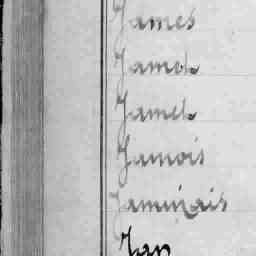 James
Jamet
Jamet
Jamois
Jaminais
Jan